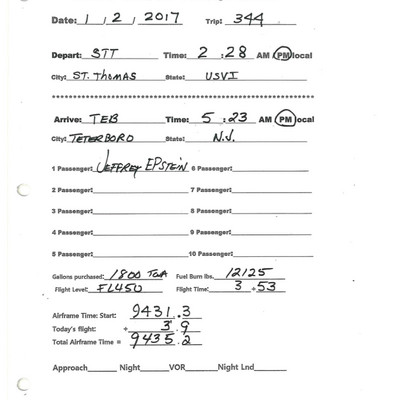 Date: 1 / 2 / 2017 Trip: 344
Depart: STT Time: 2 : 28 AM PM local
City: ST. THOMAS State: USVI
************************************************************
Arrive: TEB Time: 5 : 23 AM PM local
City: TETERBORO State: N.J.
1 Passenger: JEFFREY EPSTEIN 6 Passenger:
2 Passenger: 7 Passenger:
3 Passenger: 8 Passenger:
4 Passenger: 9 Passenger:
5 Passenger: 10 Passenger:
Gallons purchased: 1800 Fuel Burn lbs. 12125
Flight Level: FL450 Flight Time: 3 + 53
Airframe Time: Start: 9431.3
Today's flight: + 3.9
Total Airframe Time = 9435.2
Approach Night VOR Night Lnd